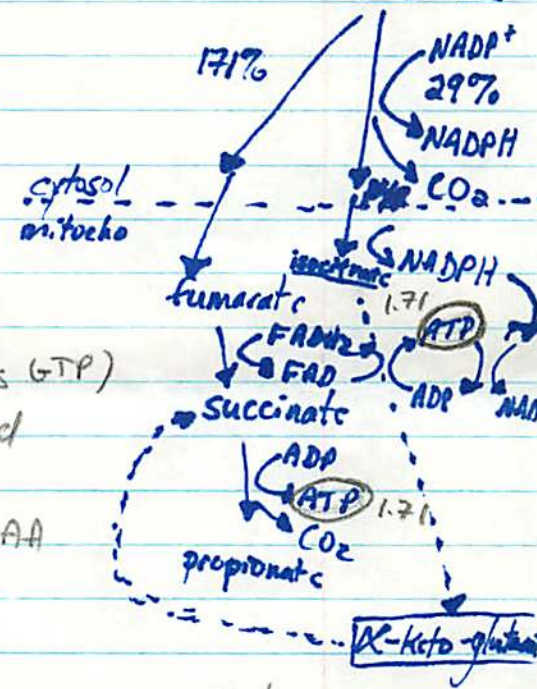 171%
NADP+
29%
NADPH
CO2
cytosol
mitocho
isocitrate
NADPH
fumarate
1.71
ATP
FADH2
FAD
ADP
NAD
s GTP)
succinate
d
ADP
ATP
1.71
CO2
AA
propionate
α-keto-glutar